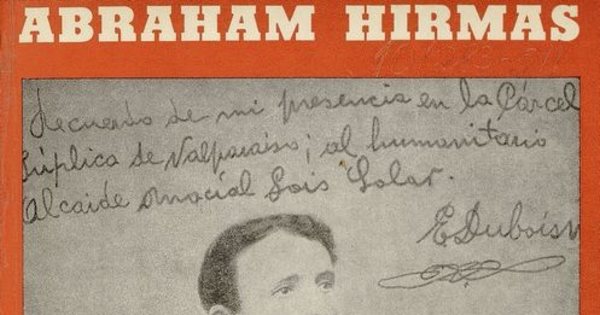 ABRAHAM HIRMAS
Recuerdo de mi presencia en la Cárcel
Púplica de Valparaíso; al humanitario
Alcaide Sois Solar.
E Dubois